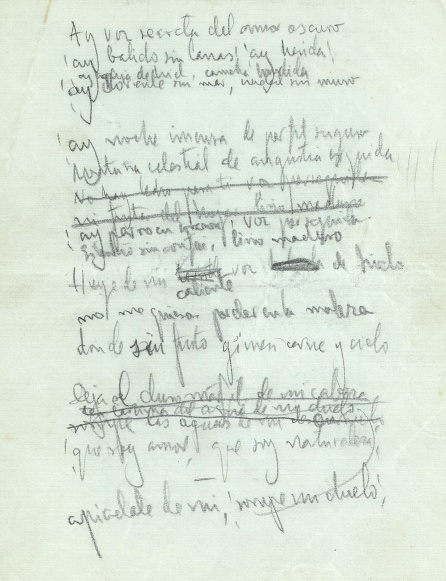 Ay voz secreta del amor oscuro
¡ay balido sin lanas! ¡ay herida!
¡ay aguja de hiel, camelia hundida
¡ay corriente sin mar, ciudad sin muro
¡ay noche inmensa de perfil seguro
montaña celestial de angustia erguida
¡ay perro en corazón! voz perseguida
silencio sin confin, lirio maduro
Huye de mi caliente voz de hielo
no me quieras perder en la maleza
donde sin fruto gimen carne y cielo
Deja el duro marfil de mi cabeza
¡que soy amor, que soy naturaleza!
apiadate de mi, ¡rompe mi duelo!